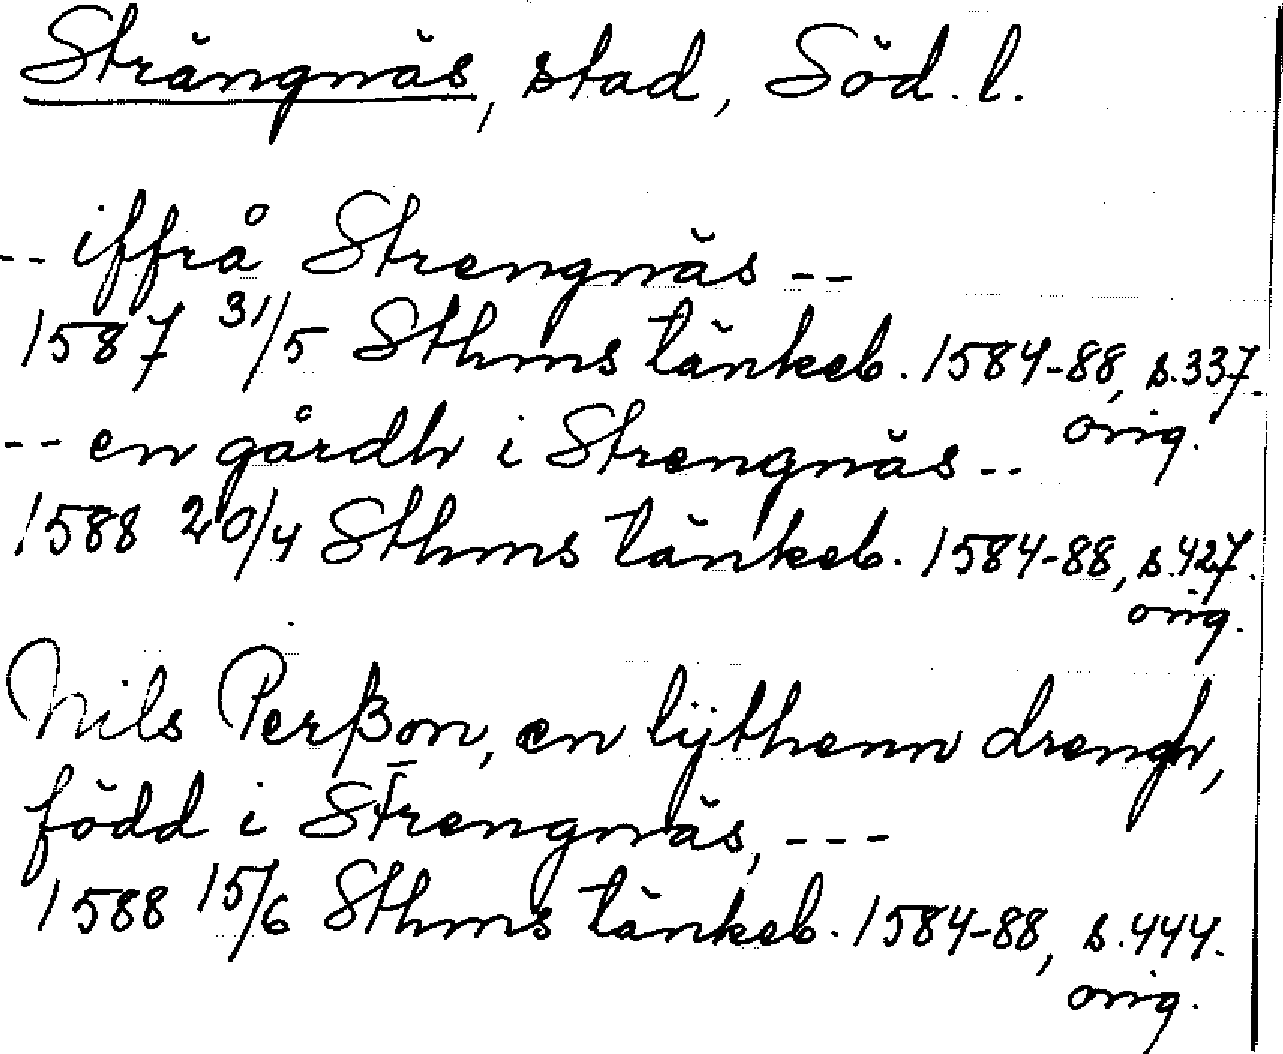 Strängnäs, stad, Söd. l.
-- iffrå Strengnäs --
1587 31/5 Sthms tänkeb. 1584-88, s. 337.
orig.
-- en gårdh i Strengnäs --
1588 20/4 Sthms tänkeb. 1584-88, s. 427.
orig.
Nils Perßon, en lÿthenn drengh,
född i Strengnäs, ---
1588 15/6 Sthms tänkeb. 1584-88, s. 444.
orig.